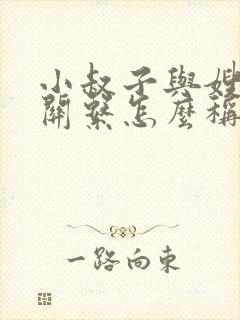 小叔子與嫂
關繫怎麼稱
一路向東